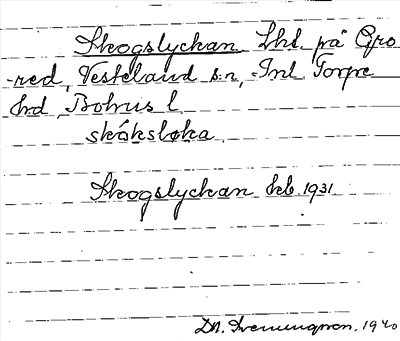 Skogslyckan Lht. på Gro
-red, Vesteland s:n, Inl Torpe
hd, Bohus l.
skåksløka
Skogslyckan kb 1931
1940